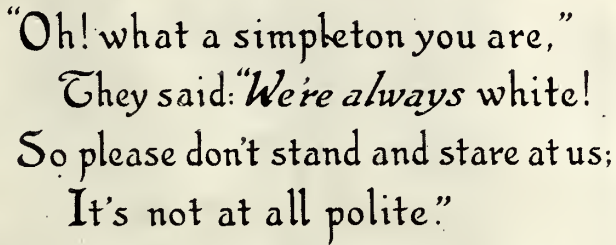 “Oh! what a simpleton you are,”
They said: “We're always white!
So please don't stand and stare at us;
It's not at all polite.”